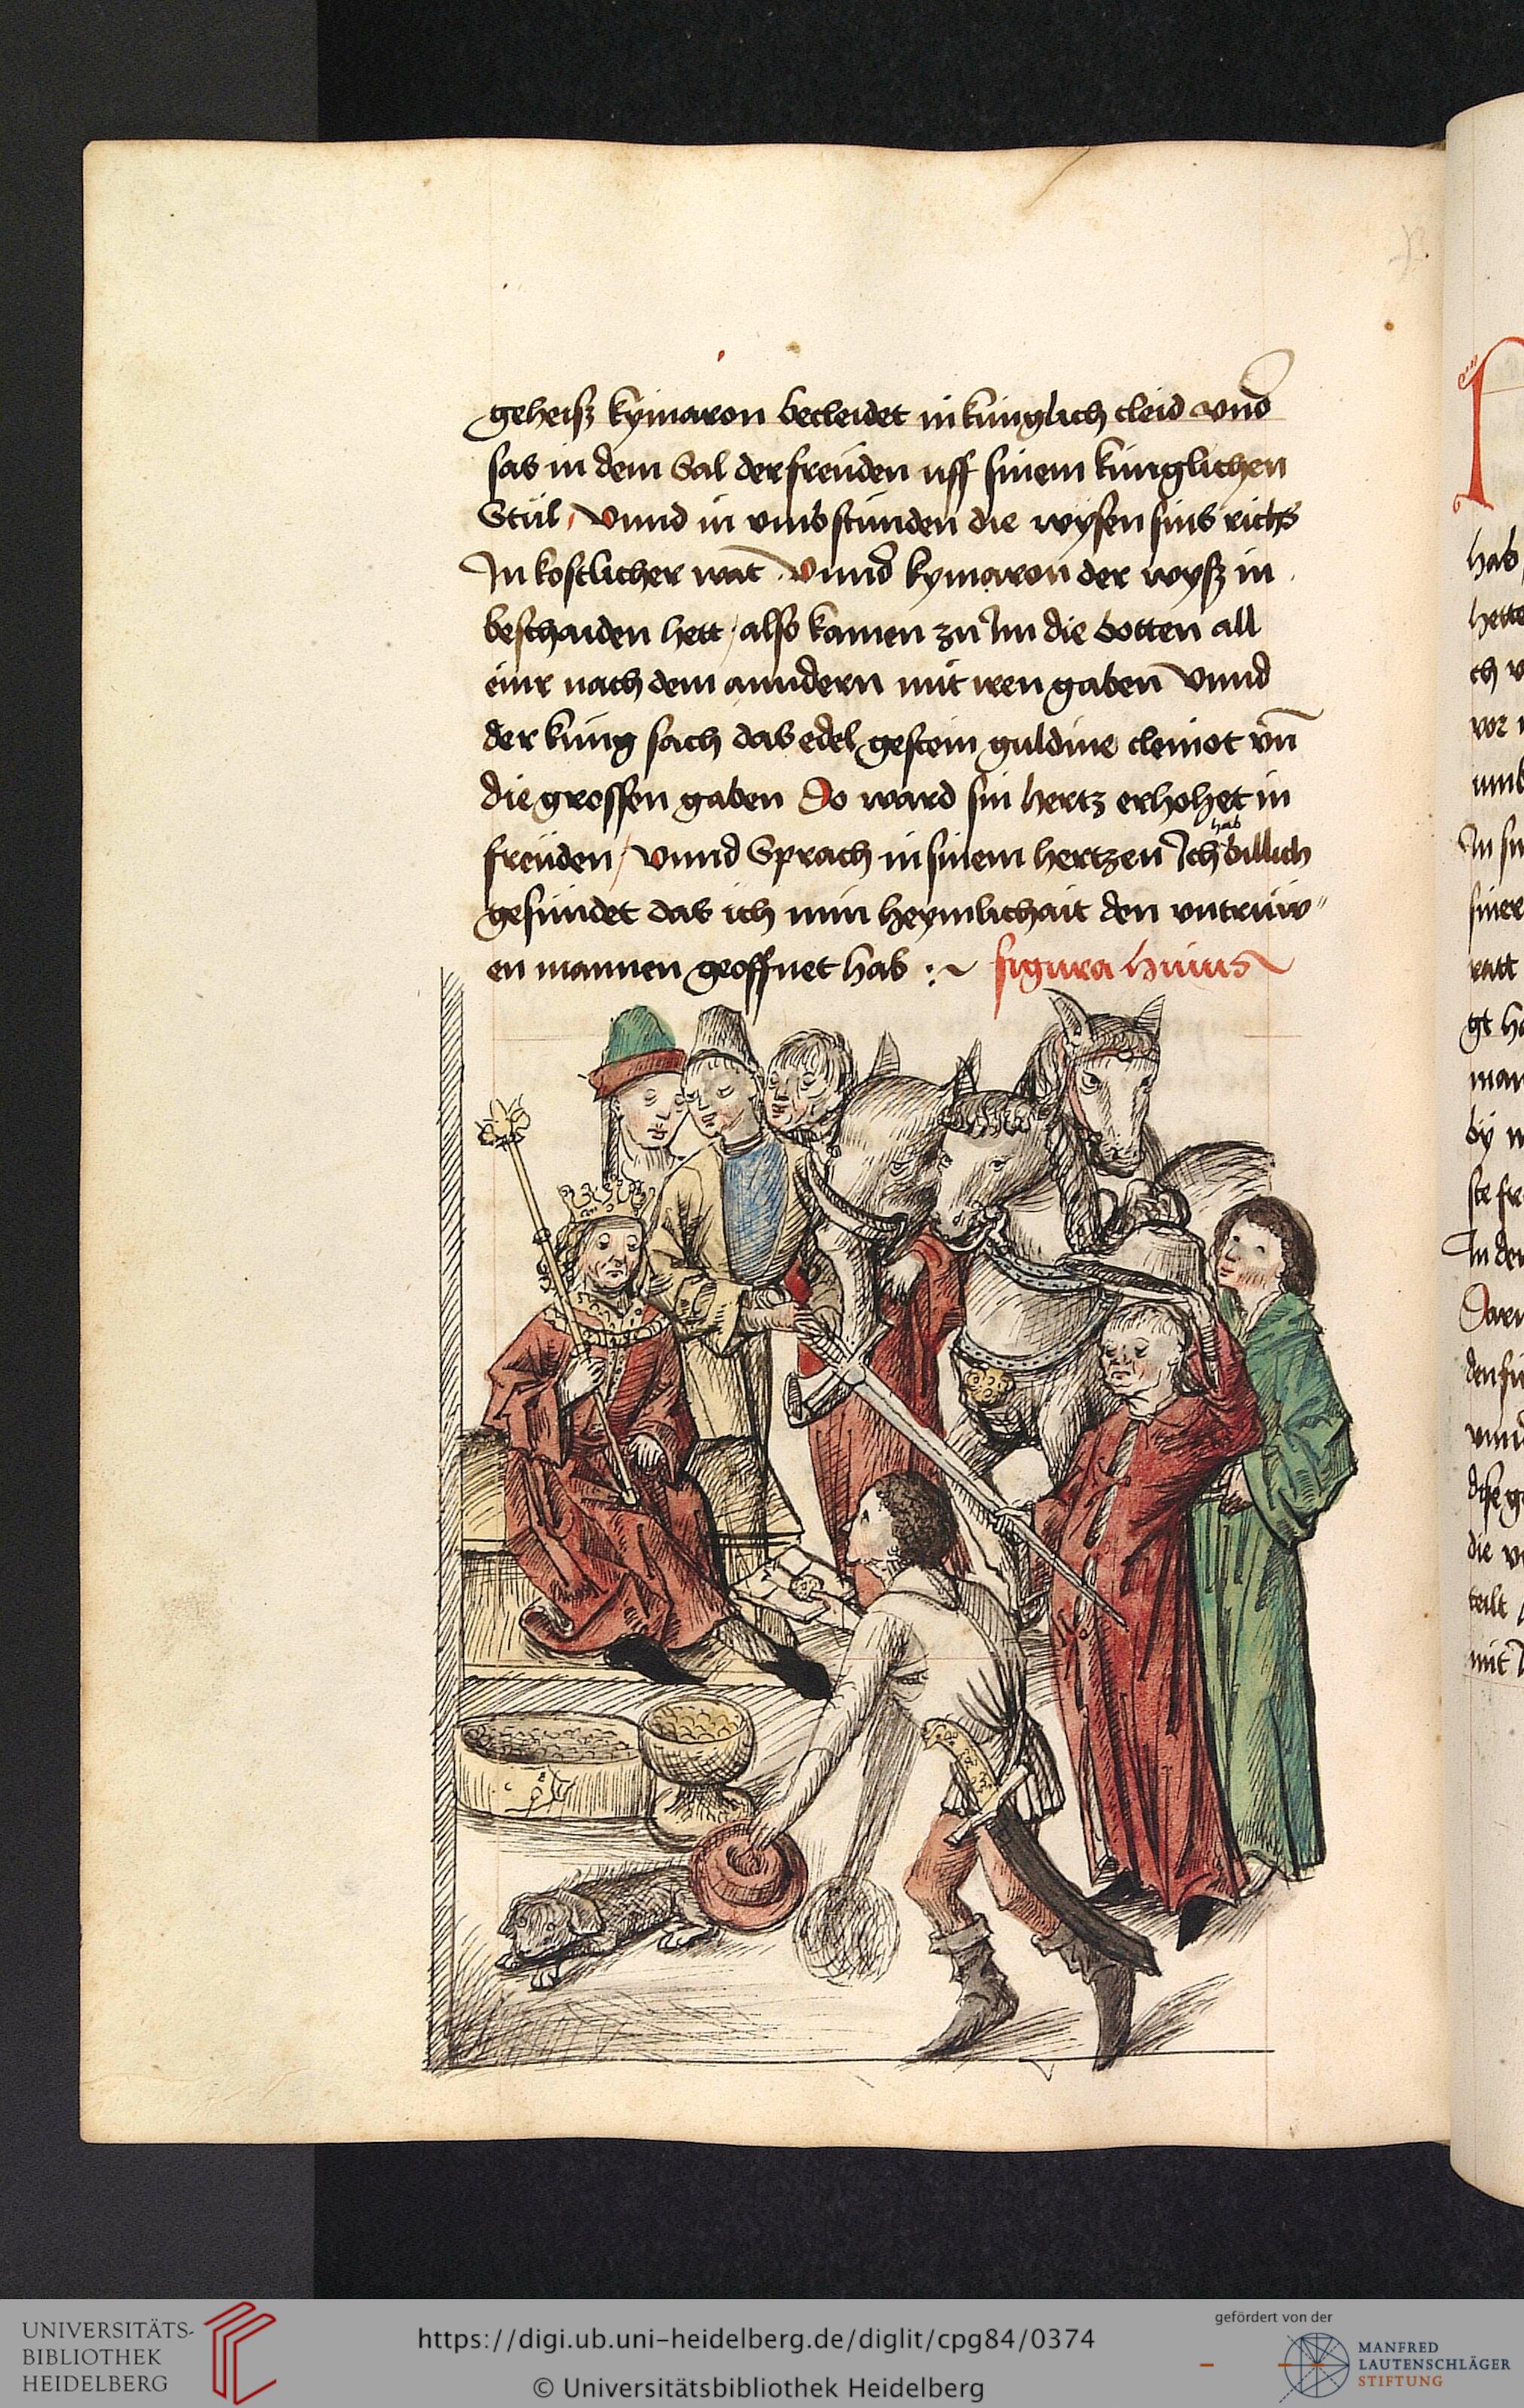 geheisz kymaron becleidet in kunglich cleid vnd
sas in dem Sal der freuden uff sinem kunglichen
Stul / vnnd in vmbstunden die wysen sins richs
In kostlicher wat . vnnd kymaron der wysz in
beschaiden hett / also kamen zu Im die botten all
einr nach dem anndern mit iren gaben vnnd
der kung sach das edel gestein guldine cleinot vn̄
die grossen gaben Do ward sin hertz erhohet in
freuden / vnnd Sprach in sinem hertzen Ich hab billich
gesundet das ich min heymlichait den vntruw〃
en mannen geoffnet hab :~ figura huius
hab
hette
ch v
vor
vmb
In si
siner
ratt
gt ha
man
by
ste fr
In der
den
vnnd
die
teilt
mit
UNIVERSITÄTS-
BIBLIOTHEK
HEIDELBERG
https://digi.ub.uni-heidelberg.de/diglit/cpg84/0374
© Universitätsbibliothek Heidelberg
gefördert von der
MANFRED
LAUTENSCHLÄGER
STIFTUNG